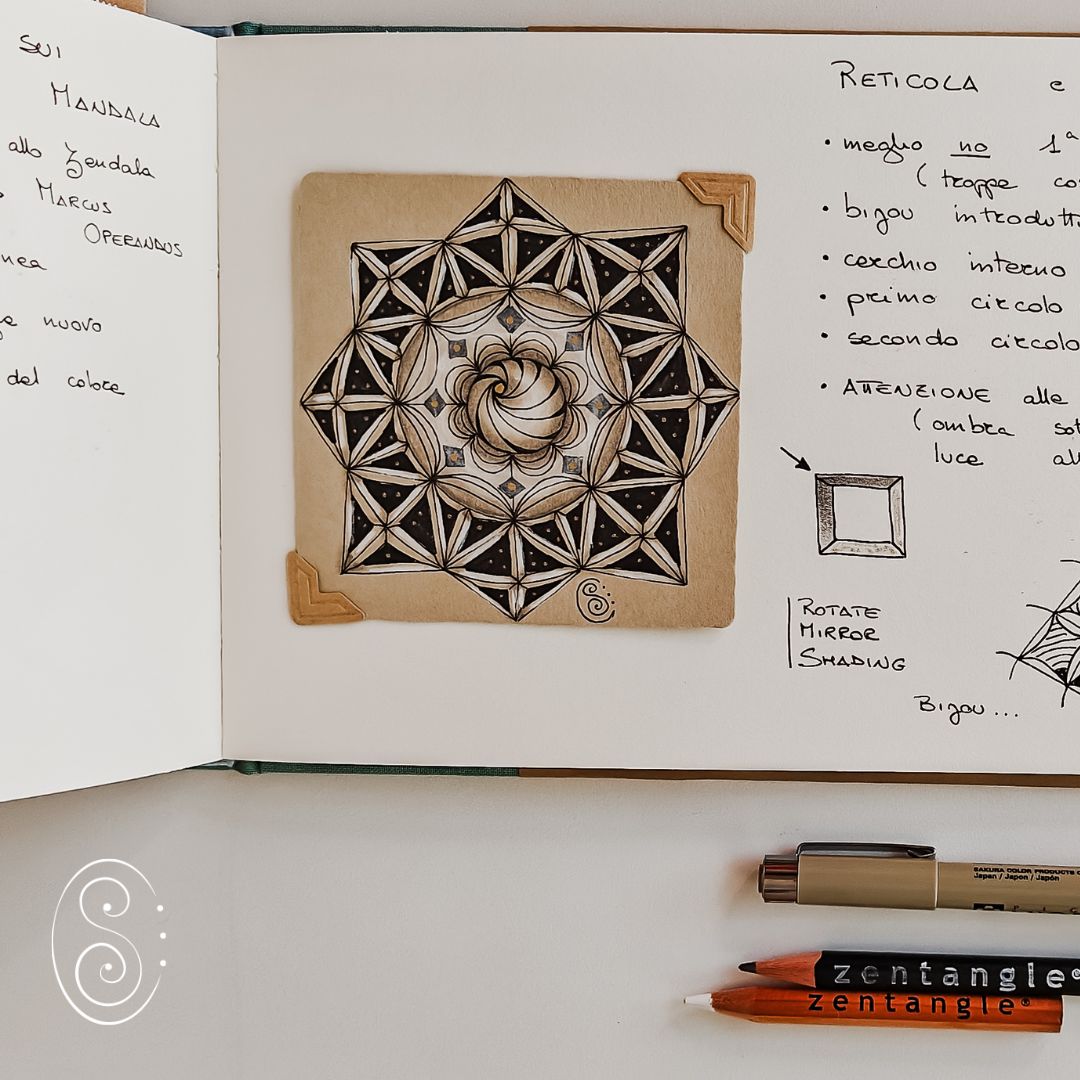 SUI
MANDALA
allo Zendala
MARCUS
OPERANDUS
nuovo
del colore
RETICOLA e
• meglio no 1ª
(troppe
• bijou
• cerchio interno
• primo circolo
• secondo circolo
• ATTENZIONE alle
(ombra
luce
ROTATE
MIRROR
SHADING
BIJOU...
SAKURA COLOR PRODUCTS
Japan / Japon / Japón
zentangle®
zentangle®